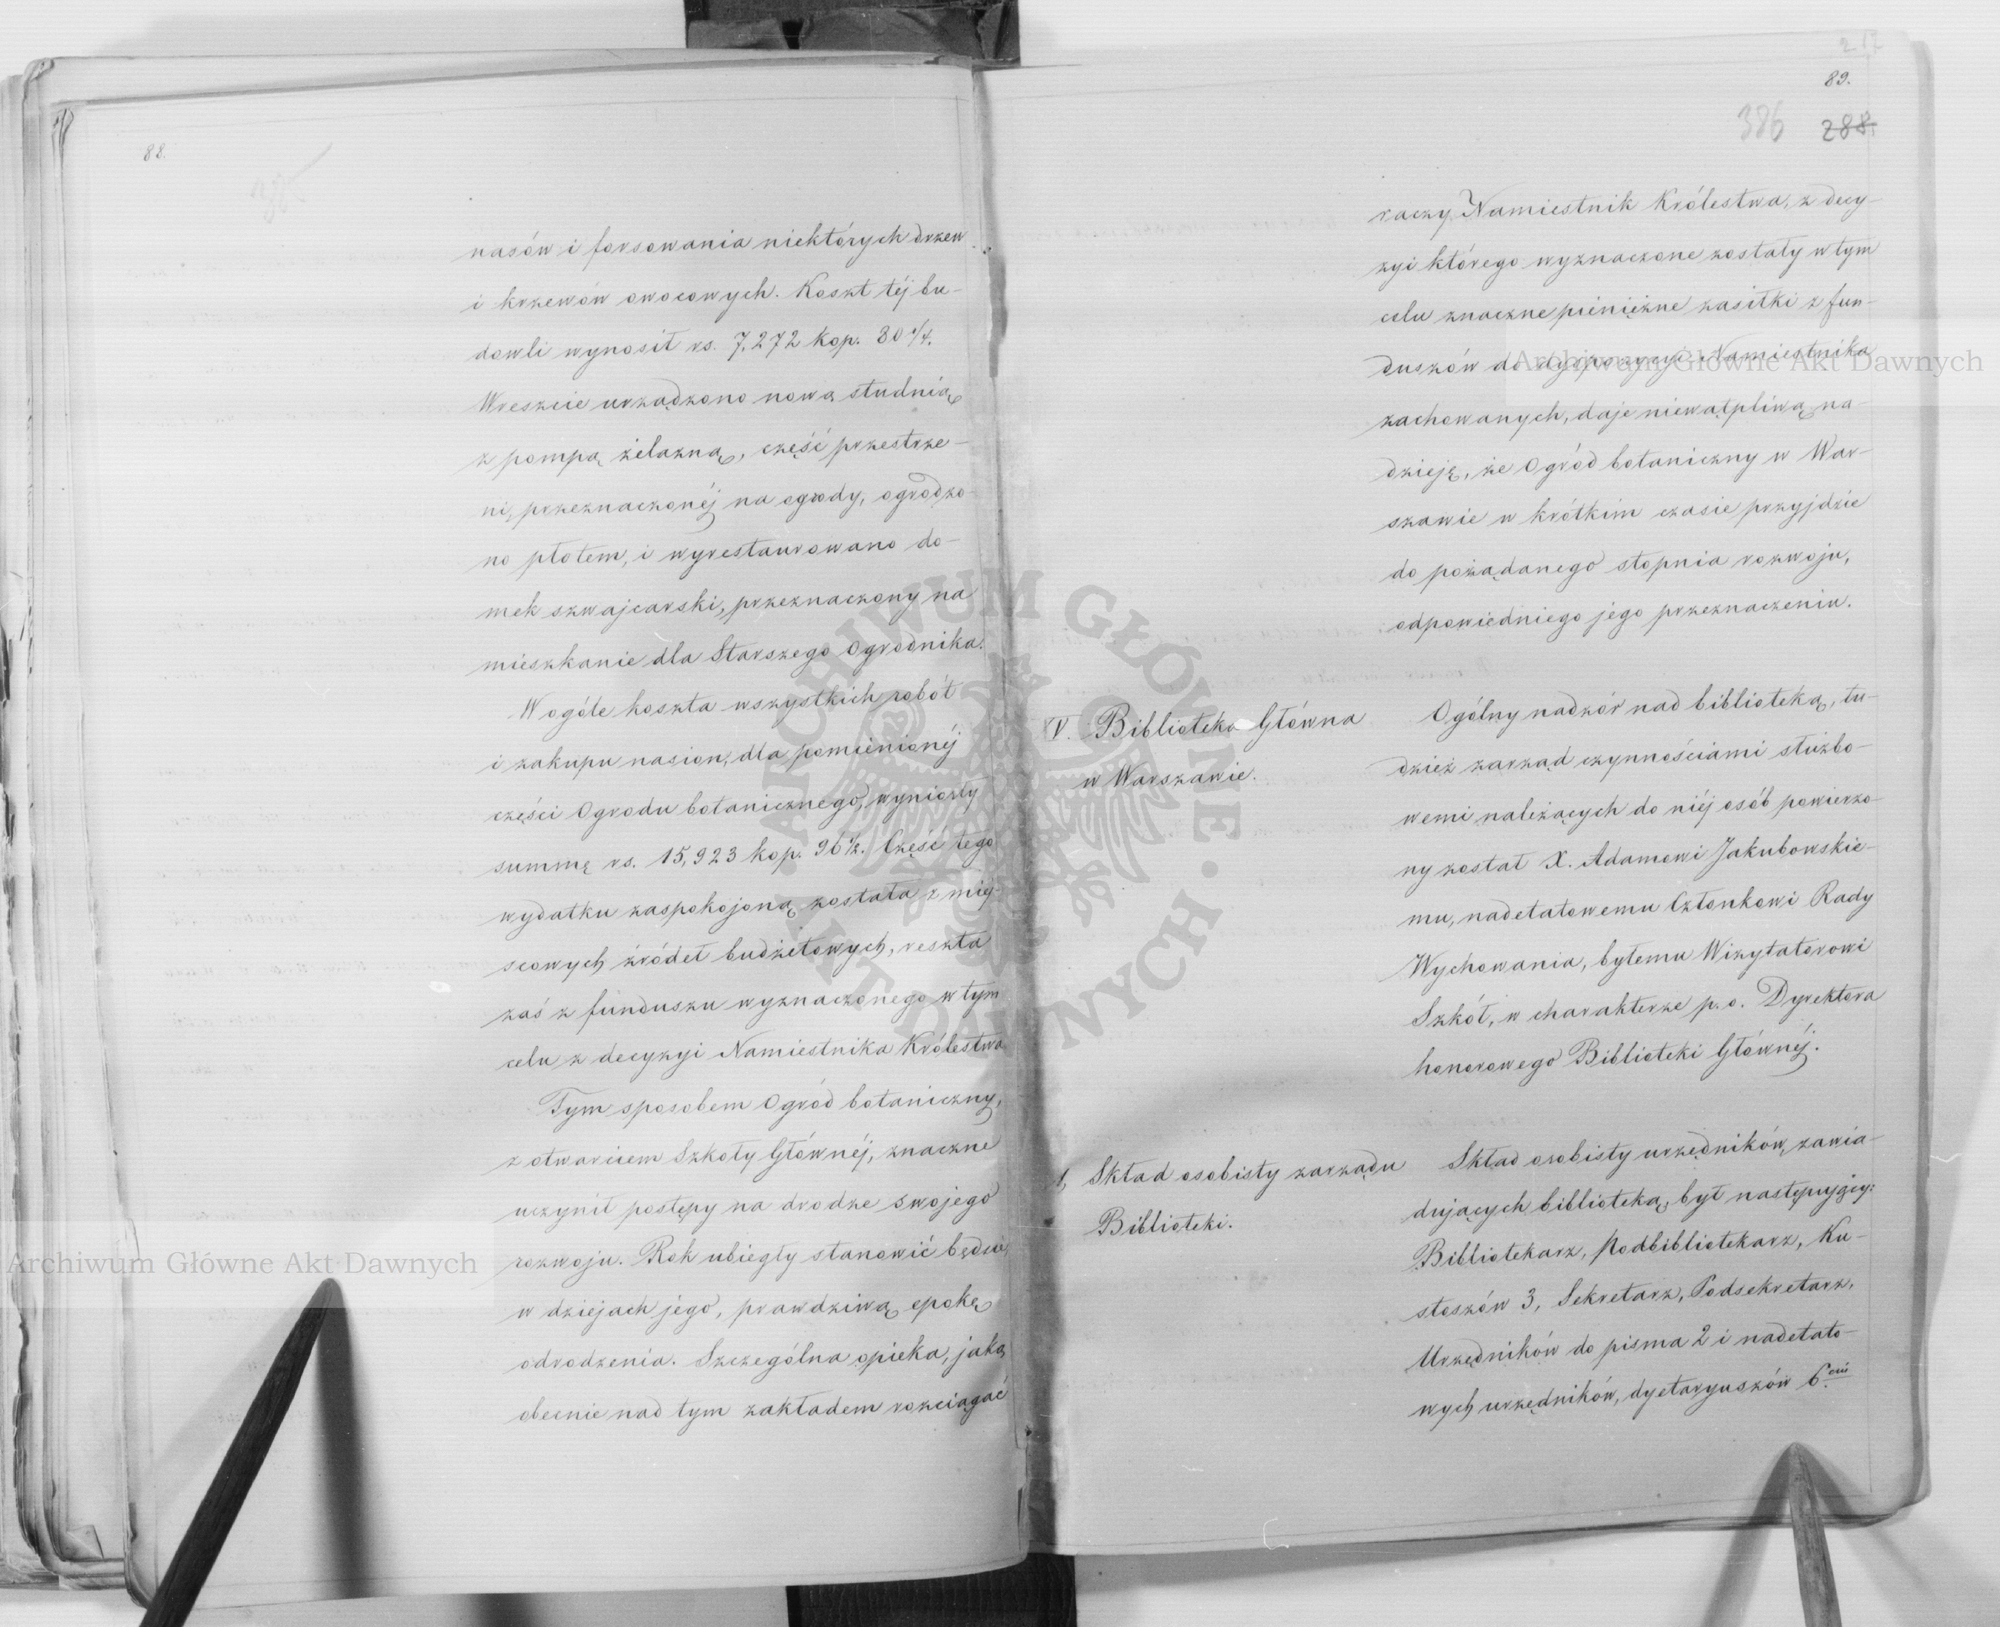 88.
385
nasów i forsowania niektórych drzew
i krzewów owocowych. Koszt téj bu-
dowli wynosił rs. 7,272 kop. 80
Wreszcie urządzono nową studnią
z pompą żelazną, część przestrze-
ni, przeznaczonéj na ogrody, ogrodzo-
no płotem, i wyrestaurowano do-
mek szwajcarski, przeznaczony na
mieszkanie dla Starszego Ogrodnika.
Wogóle koszta wszystkich robót
i zakupu nasion, dla pomienionéj
części Ogrodu botanicznego, wyniosły
summę rs. 15,923 kop. 96½. Część tego
wydatku zaspokojoną została z miej-
scowych źródeł budżetowych, reszta
zaś z funduszu wyznaczonego w tym
celu z decyzyi Namiestnika Królestwa
Tym sposobem Ogród botaniczny,
z otwarciem Szkoły Głównéj, znaczne
uczynił postępy na drodze swojego
rozwoju. Rok ubiegły stanowić będzie,
w dziejach jego, prawdziwą epokę
odrodzenia. Szczególna opieka, jaką
obecnie nad tym zakładem rozciągać
217
89.
386 288
raczy Namiestnik Królestwa, z decy-
zyi którego wyznaczone zostały w tym
celu znaczne pieniężne zasiłki z fun-
duszów do dyspozycyi Namiestnika
zachowanych, daje niewątpliwą na-
dzieję, że Ogród botaniczny w War-
szawie w krótkim czasie przyjdzie
do pożądanego stopnia rozwoju,
odpowiedniego jego przeznaczeniu.
V. Biblioteka Główna
w Warszawie.
Ogólny nadzór nad biblioteką, tu-
dzież zarząd czynnościami służbo-
wemi należących do niéj osób powierzo-
ny został X. Adamowi Jakubowskie-
mu, nadetatowemu Członkowi Rady
Wychowania, byłemu Wizytatorowi
Szkół, w charakterze p.o. Dyrektora
honorowego Biblioteki Głównéj.
1, Skład osobisty zarządu
Biblioteki.
Skład osobisty urzędników, zawia-
dujących biblioteką, był następujący:
Bibliotekarz, Podbibliotekarz, Ku-
stoszów 3, Sekretarz, Podsekretarz,
Urzędników do pisma 2 i nadetato-
wych urzędników, dyetaryuszów 6.ciu
Archiwum Główne Akt Dawnych
Archiwum Główne Akt Dawnych
ARCHIWUM GŁÓWNE · AKT DAWNYCH ·